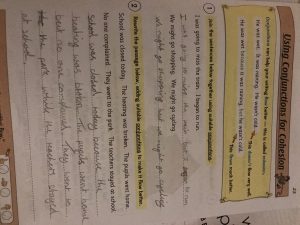 Using Conjunctions for Cohesion
Conjunctions can help your writing flow better — this is called cohesion.
He was wet. It was raining. He wasn't cold.
This doesn't flow very well.
He was wet because it was raining, but he wasn't cold.
This flows much better.
1 Join the sentences below together using suitable conjunctions.
I was going to miss the train. I began to run.
I was going to miss the train
began to run
We might go shopping. We might go cycling.
we might go shopping and we might go cycling
2 Rewrite the passage below, adding suitable conjunctions to make it flow better.
School was closed today. The heating was broken. The pupils went home.
No one complained. They went to the park. The teachers stayed at school.
School was closed today because the
heating was broken. The pupils went home
but no one complained. They went to
the park while the teachers stayed
at school.